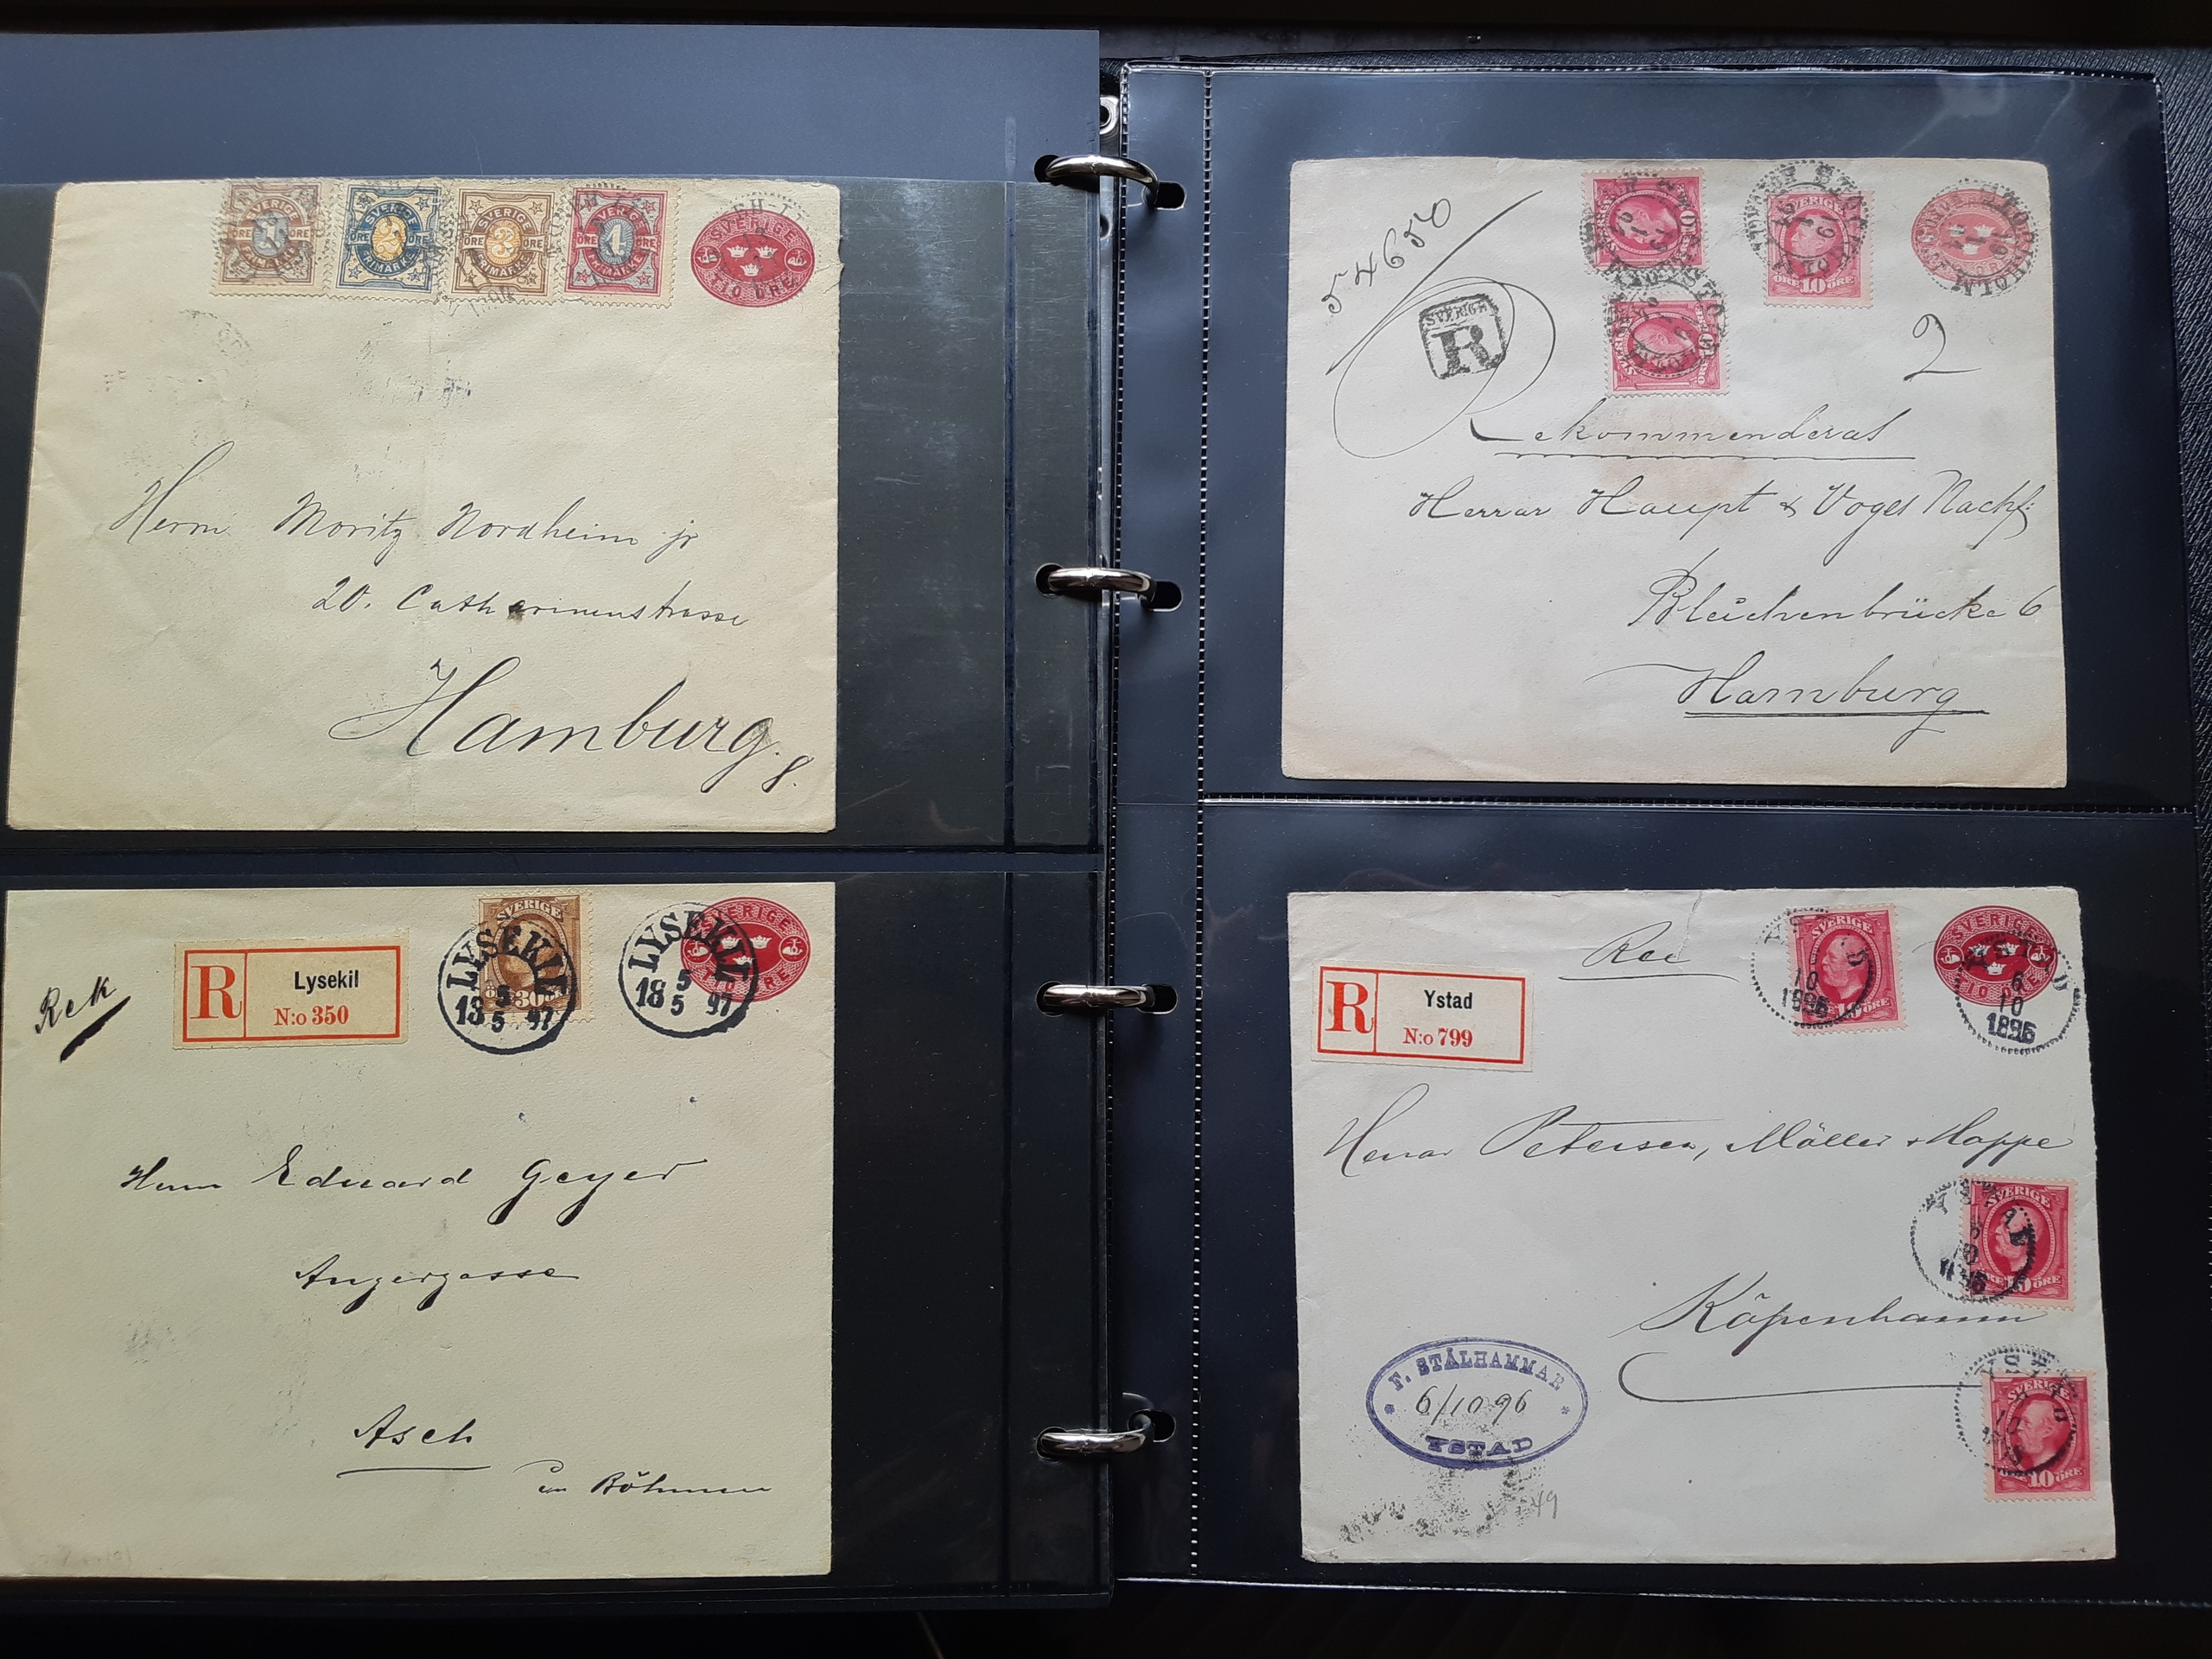 SVERIGE
1
ÖRE ÖRE
FRIMÄRKE
SVERIGE
2
ÖRE ÖRE
FRIMÄRKE
SVERIGE
3
ÖRE ÖRE
FRIMÄRKE
SVERIGE
4
ÖRE ÖRE
FRIMÄRKE
SVERIGE
TIO ÖRE
Herrn Moritz Nordheim jr
20. Catharinenstrasse
Hamburg. 8.
Rek
R
Lysekil
N:o 350
SVERIGE
30
LYSEKIL
5
18 97
5
SVERIGE
TIO ÖRE
LYSEKIL
5
18 97
5
Herrn Eduard Geyer
Angergasse
Asch
in Böhmen
4650
SVERIGE
R
SVERIGE
ÖRE 10 ÖRE
STOCKHOLM
2
Rekommenderas
Herrar Haupt & Voges Nachf.
Bleichenbrücke 6
Hamburg
Rec
R
Ystad
N:o 799
SVERIGE
10 ÖRE
YSTAD
10
1896
SVERIGE
TIO ÖRE
YSTAD
6
10
1896
Herrar Petersen, Möller & Hoppe
SVERIGE
10 ÖRE
YSTAD
1896
Köpenhamn
SVERIGE
10 ÖRE
YSTAD
F. STÅLHAMMAR
6/10 96
YSTAD
49